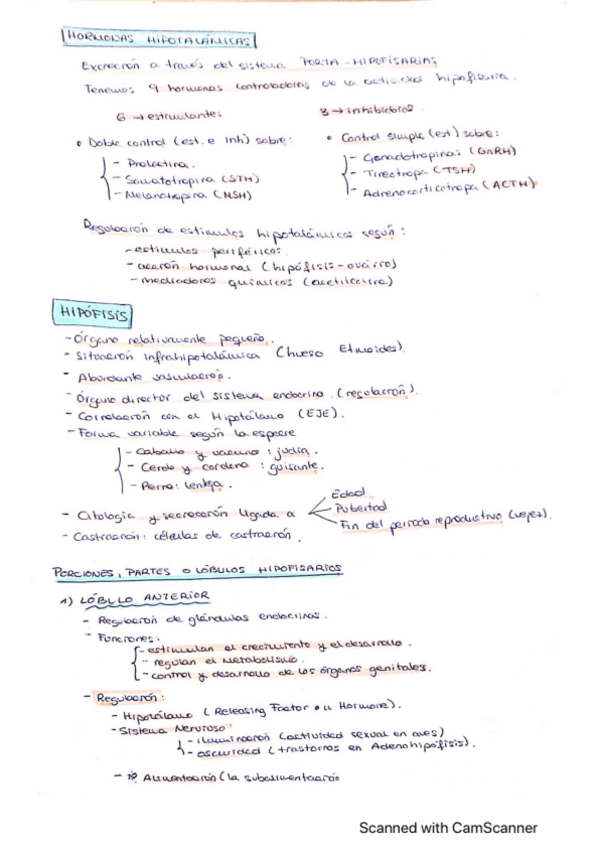 HORMONAS HIPOTALÁMICAS
Excreción a través del sistema PORTA-HIPOFISARIAS
Tenemos 9 hormonas controladoras de la actividad hipofisaria.
6 → estimulantes 3 → inhibidoras
• Doble control (est. e inh) sobre:
- Prolactina.
- Somatotropina (STH)
- Melanotropina (MSH)
• Control simple (est) sobre:
- Gonadotropinas (GnRH)
- Tireotropa (TSH)
- Adrenocorticotropa (ACTH)
Regulación de estímulos hipotalámicos según:
- estímulos periféricos.
- acción hormonal (hipófisis-ovario)
- mediadores químicos (acetilcolina)
HIPÓFISIS
- Órgano relativamente pequeño.
- Situación infrahipotalámica (hueso Etmoides).
- Abundante vascularión.
- Órgano director del sistema endocrino. (regulación).
- Correlación con el Hipotálamo (EJE).
- Forma variable según la especie
- Caballo y vacuno: judía.
- Cerdo y cordero: guisante.
- Perro: lenteja.
- Citología y secreción ligada a
Edad
Pubertad
Fin del periodo reproductivo (vejez).
- Castración: células de castración.
PORCIONES, PARTES O LÓBULOS HIPOFISARIOS
1) LÓBULO ANTERIOR
- Regulación de glándulas endocrinas.
- Funciones:
- estimulan el crecimiento y el desarrollo.
- regulan el metabolismo.
- control y desarrollo de los órganos genitales.
- Regulación:
- Hipotálamo (Releasing Factor o " Hormone).
- Sistema Nervioso
- iluminación (actividad sexual en aves)
- oscuridad (trastornos en Adenohipófisis).
- Alimentación (la subalimentación
Scanned with CamScanner